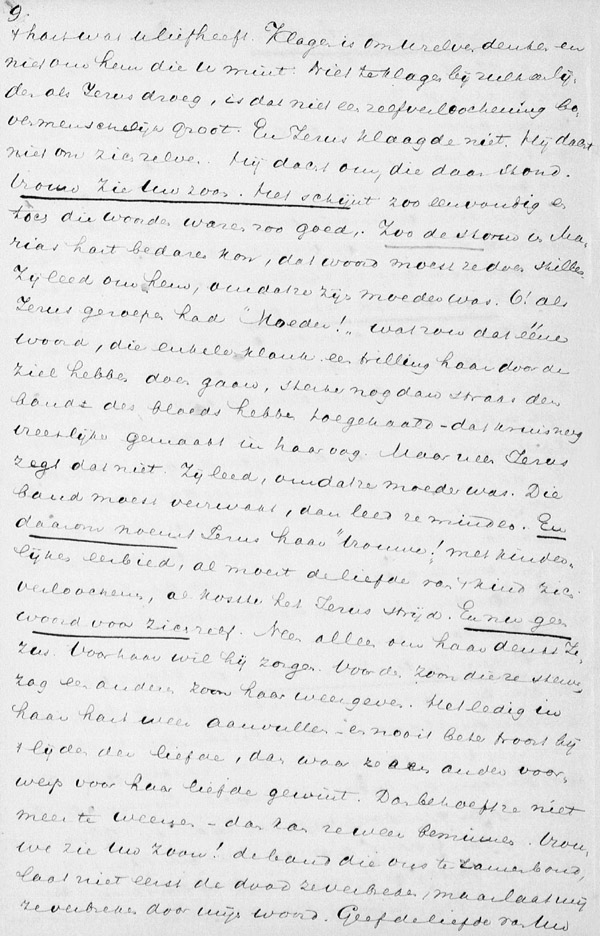 9.
't hart wat U liefheeft. Klagen is om U zelve denken en
niet om hem die U mint. Niet te klagen bij zulk een lij-
den als Jezus droeg, is dat niet een zelfverloochening bo-
vermenschelijk groot. En Jezus klaagde niet. Hij dacht
niet om zich zelve. Hij dacht om, die daar stond.
Vrouw zie Uw zoon. Het schijnt zoo eenvoudig en
toch die woorden waren zoo goed. Zoo de storm in Ma-
rias hart bedaren kon, dat woord moest ze doen stillen
Zij leed om hem, omdat ze zijn moeder was. O! als
Jezus geroepen had "Moeder!" wat zou dat ééne
woord, die enkele klank een trilling haar door de
ziel hebben doen gaan, sterker nog dan straks den
band des bloeds hebben toegehaald - dat kruis nog
vreeslijker gemaakt in haar oog. Maar neen Jezus
zegt dat niet. Zij leed, omdat ze moeder was. Die
band moest verzwakt, dan leed ze minder. En
daarom noemt Jezus haar "Vrouwe!" met kinder-
lijken eerbied, al moest de liefde van 't kind zich
verloochenen, al kostte het Jezus strijd. En nu geen
woord voor zichzelf. Neen alleen om haar denkt Je-
zus. Voor haar wil hij zorgen. Voor den zoon die ze sterven
zag een anderen zoon haar weergeven. Het ledig in
haar hart weer aanvullen - er nooit beter troost bij
't lijden der liefde, dan waar ze een ander voor-
werp voor haar liefde gewint. Dan behoeft ze niet
meer te weenen - dan kan ze weer beminnen. Vrou-
we zie Uw zoon! de band die ons te zamen bond,
laat niet eerst de dood ze verbreken, maar laat mij
ze verbreken door mijn woord. Geef de liefde van Uw